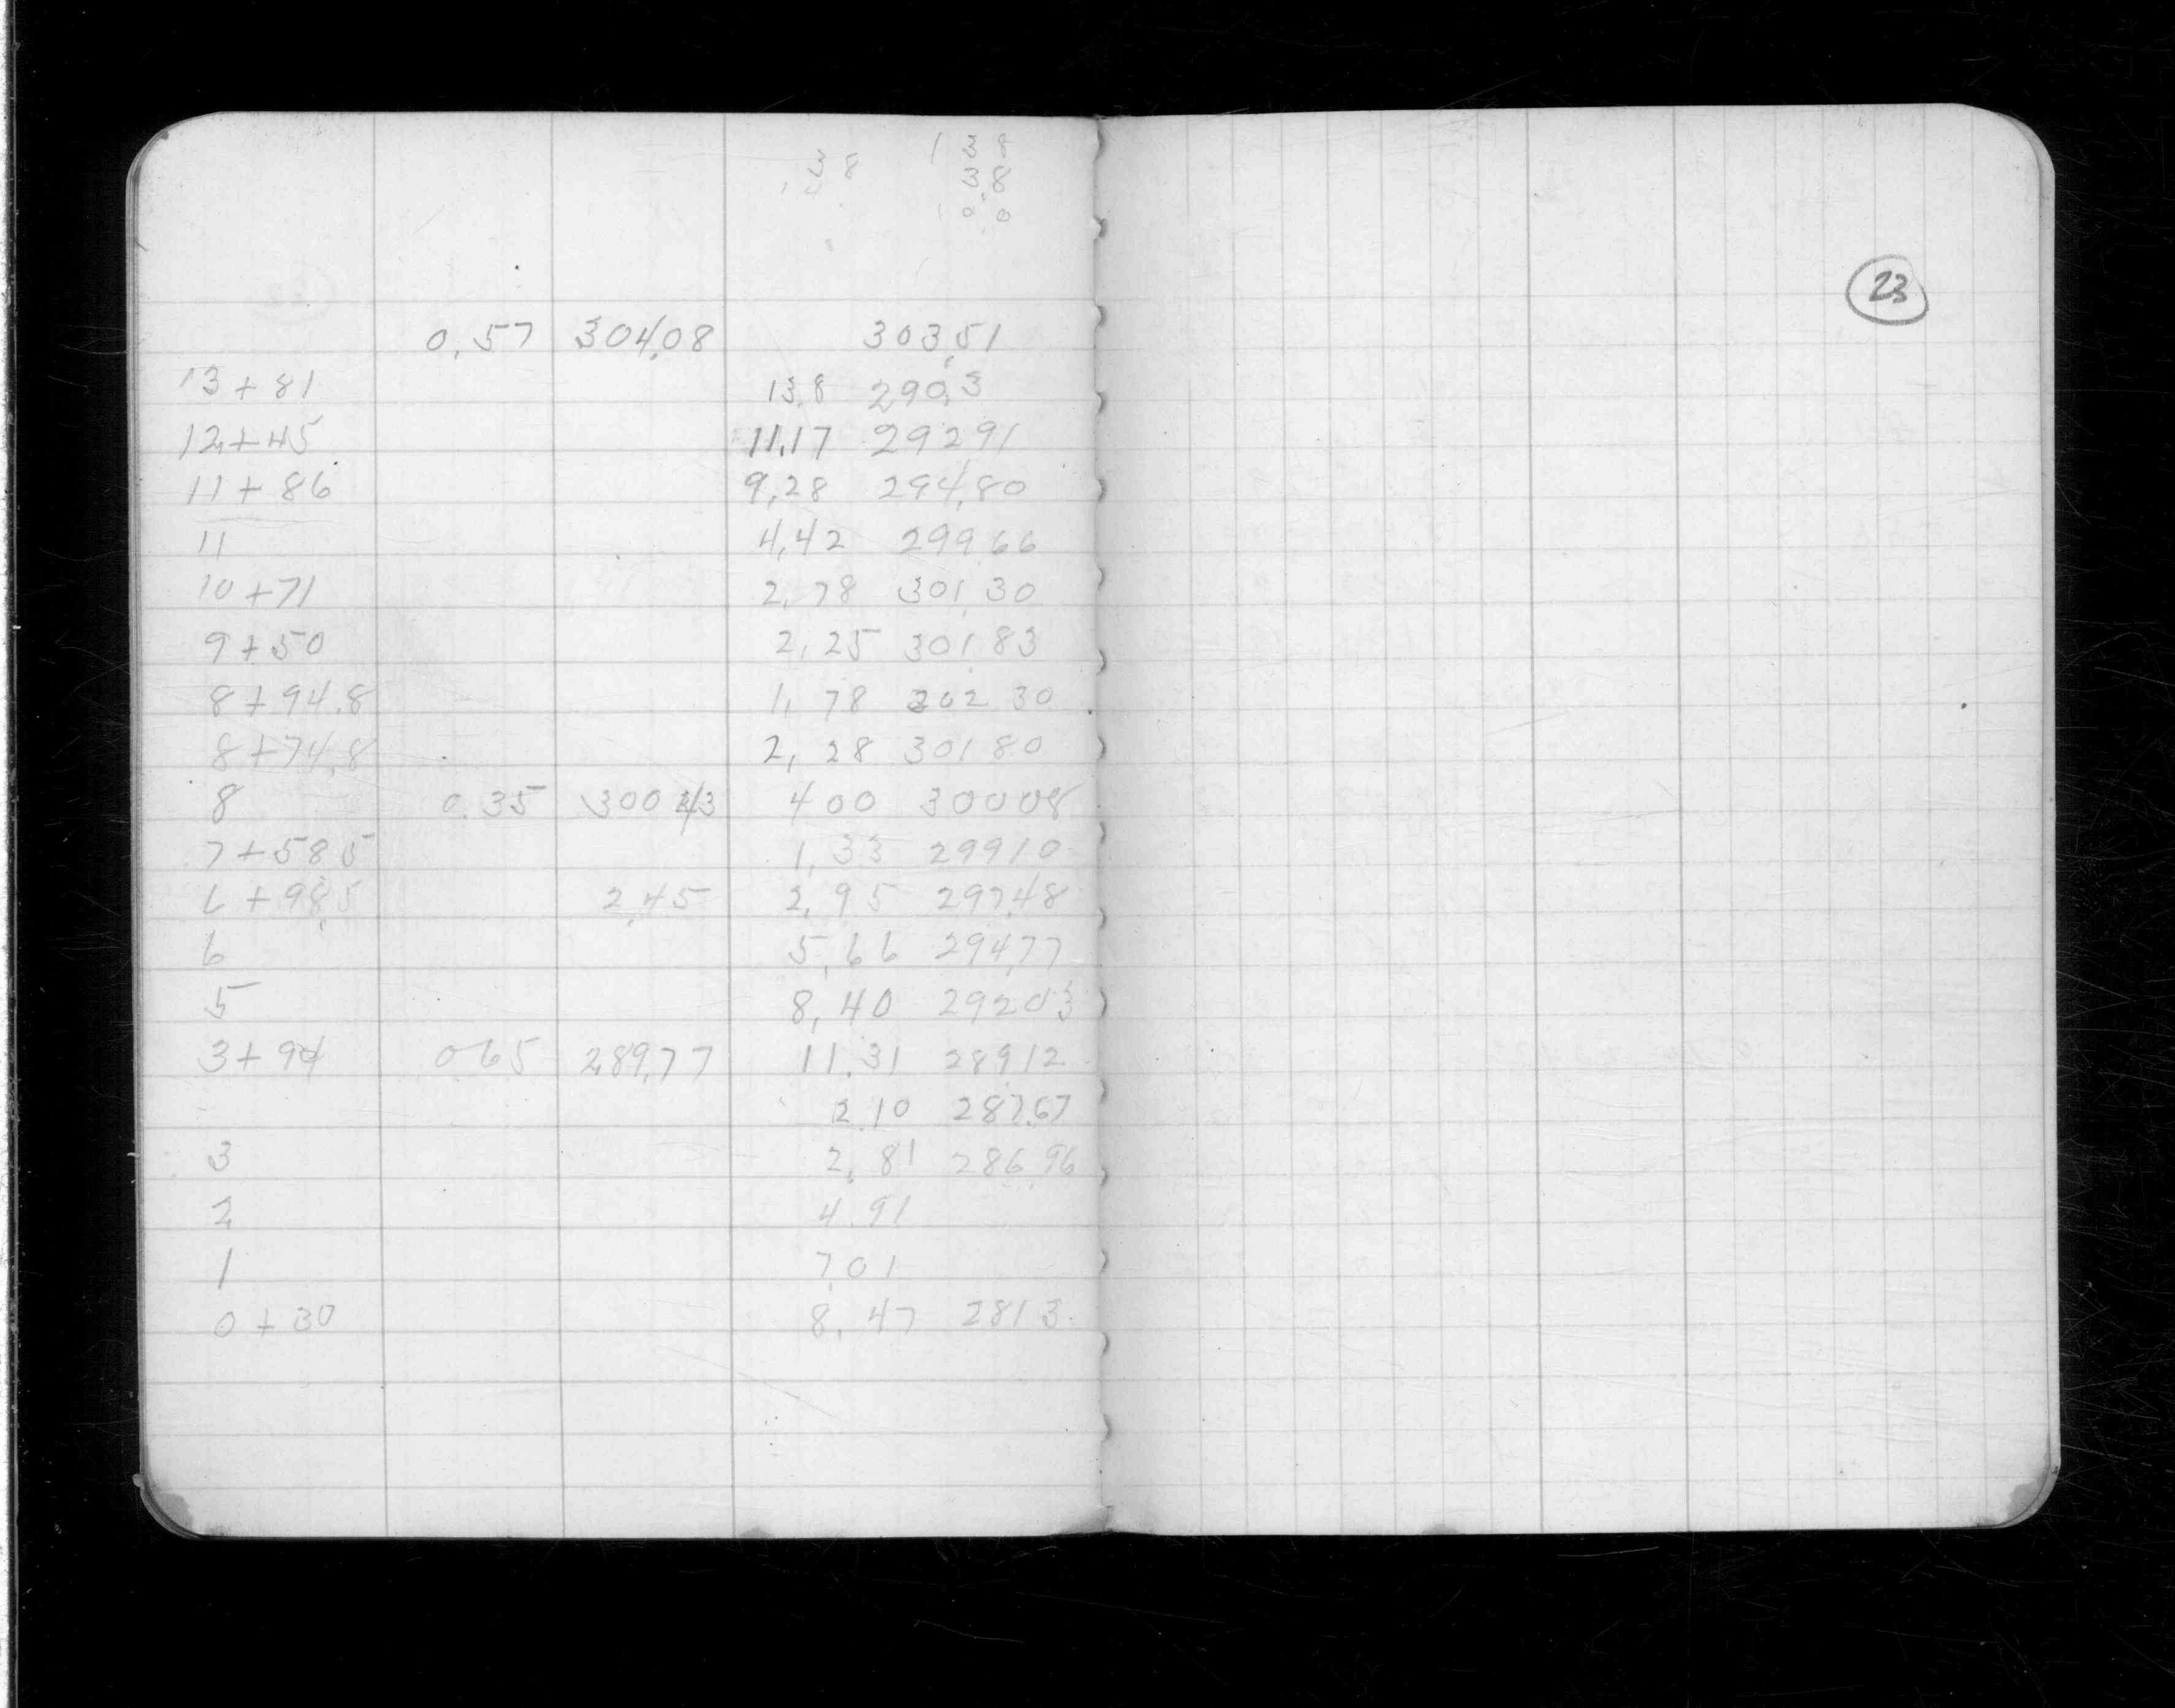 23
0.57 304.08 303.51
13+81 13.8 290.3
12+45 11.17 29291
11+86 9.28 294.80
11 4.42 29966
10+71 2.78 301.30
9+50 2.25 301.83
8+94.8 1.78 302 30
8+74.8 2.28 30180
8 0.35 300 43 400 30008
7+58 5 1.33 29910
6+98.5 2.45 2.95 297.48
6 5.66 294.77
5 8.40 29203
3+94 065 289.77 11.31 28912
2 10 287.67
3 2.81 286.96
2 4.91
1 7.01
0+30 8.47 281 3